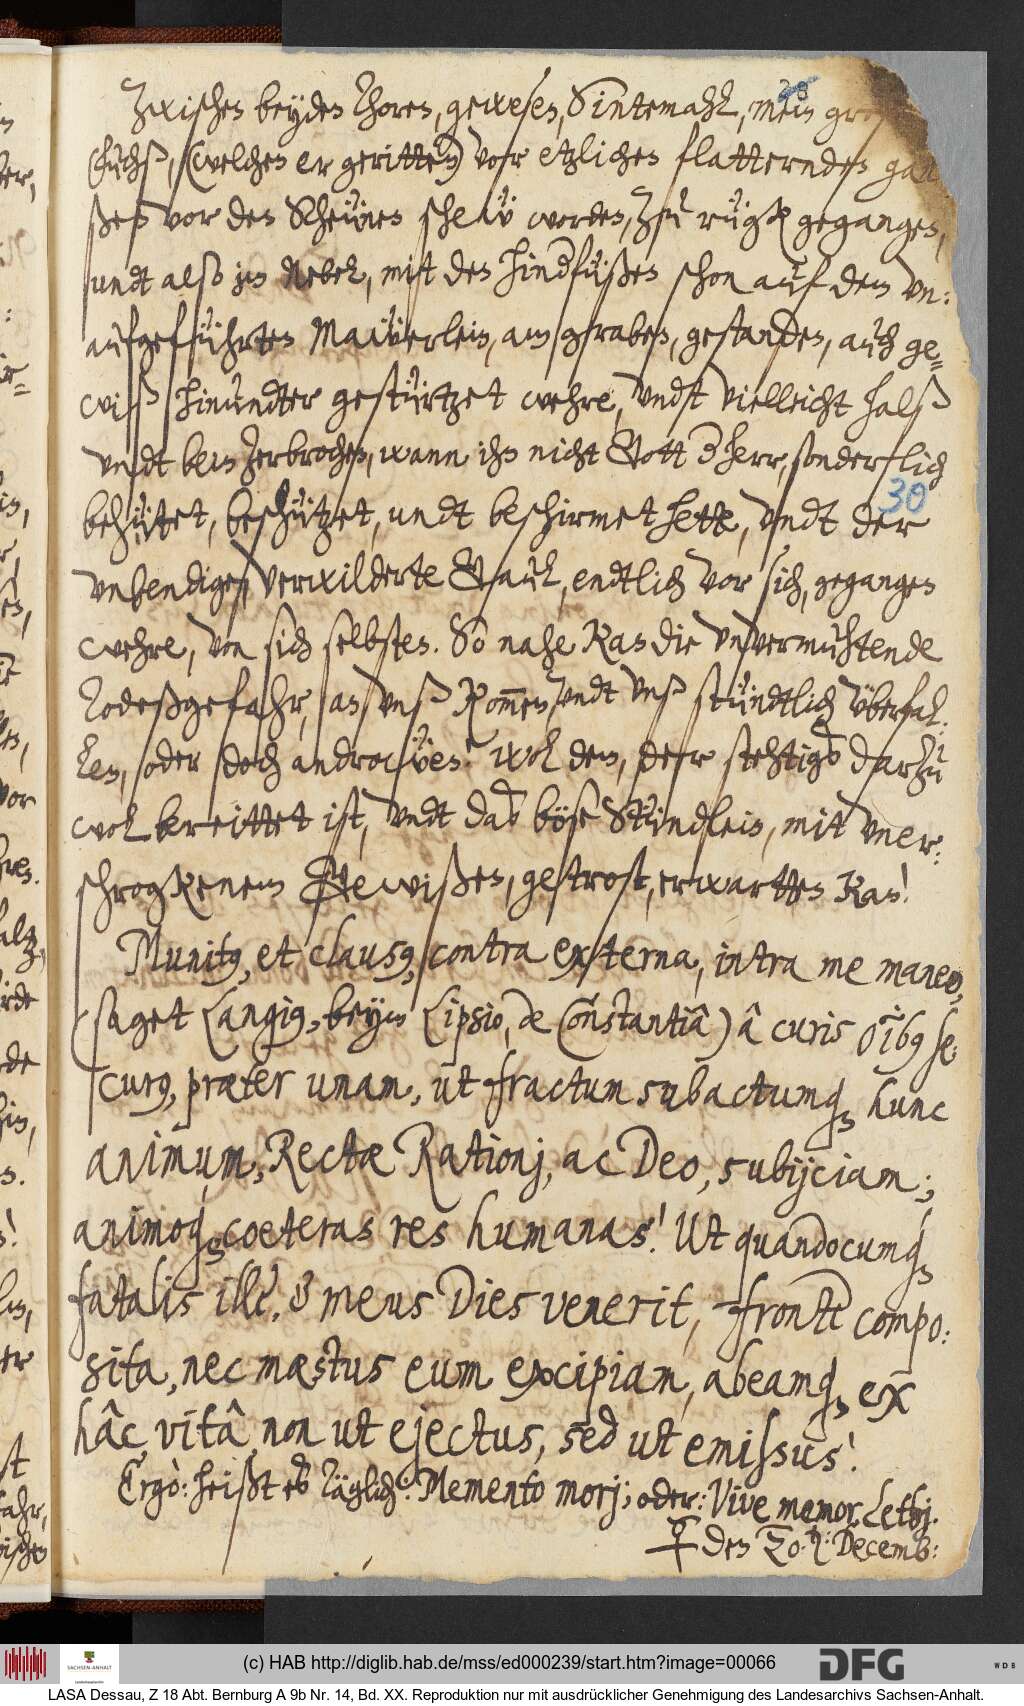 28
Zwischen beyden Thoren, gewesen, Sintemahl, mein gro
fuchß, (welchen er geritten) vor etzlichen flatternden gän
ßen vor den Scheünen scheü worden, zu rügk gegangen,
undt also in Nebel, mit den hindfüßen schon auf dem un:
aufgeführten Maüerlein, am graben, gestanden, auch ge=
wiß hinundter gestürtzet wehre, undt vielleicht halß
undt bein zerbrochen, wann ihn nicht Gott der herr, sonderlich
30
behütet, beschützet, undt beschirmet hette, undt der
unbendige, verwilderte Gaul, endtlich vor sich, gegangen
wehre, von sich selbsten. So nahe kan die unvermuhtende
Todeßgefahr, an unß kom̄en, undt unß stündtlich überfal:
len, oder doch androwen! wol dem, der stehtigs darzu
wol bereittet ist, undt das böse Stündlein, mit uner:
schrogkenem Gewißen, getrost, erwartten kan!
Munitꝰ, et clausꝰ, contra externa, intra me maneo,
(saget Langiꝰ, beym Lipsio, de Constantiâ) â curis oībꝰ se:
curꝰ, præter unam, ut fractum subactumq́ꝫ hunc
animum, Rectæ Rationj, ac Deo, subijciam;
animoq́ꝫ cœteras res humanas! Ut quandocumq́ꝫ
fatalis ille, & meus Dies venerit, fronte compo:
sita, nec mæstus eum excipiam, abeamq́ꝫ ex
hâc vitâ non ut ejectus, sed ut emissus!
Ergò: heißt es Täglich: Memento morj; oder: Vive memor Lethj.
♀ den 20. Decemb:
(c) HAB http://diglib.hab.de/mss/ed000239/start.htm?image=00066
SACHSEN-ANHALT
DFG
WDB
LASA Dessau, Z 18 Abt. Bernburg A 9b Nr. 14, Bd. XX. Reproduktion nur mit ausdrücklicher Genehmigung des Landesarchivs Sachsen-Anhalt.